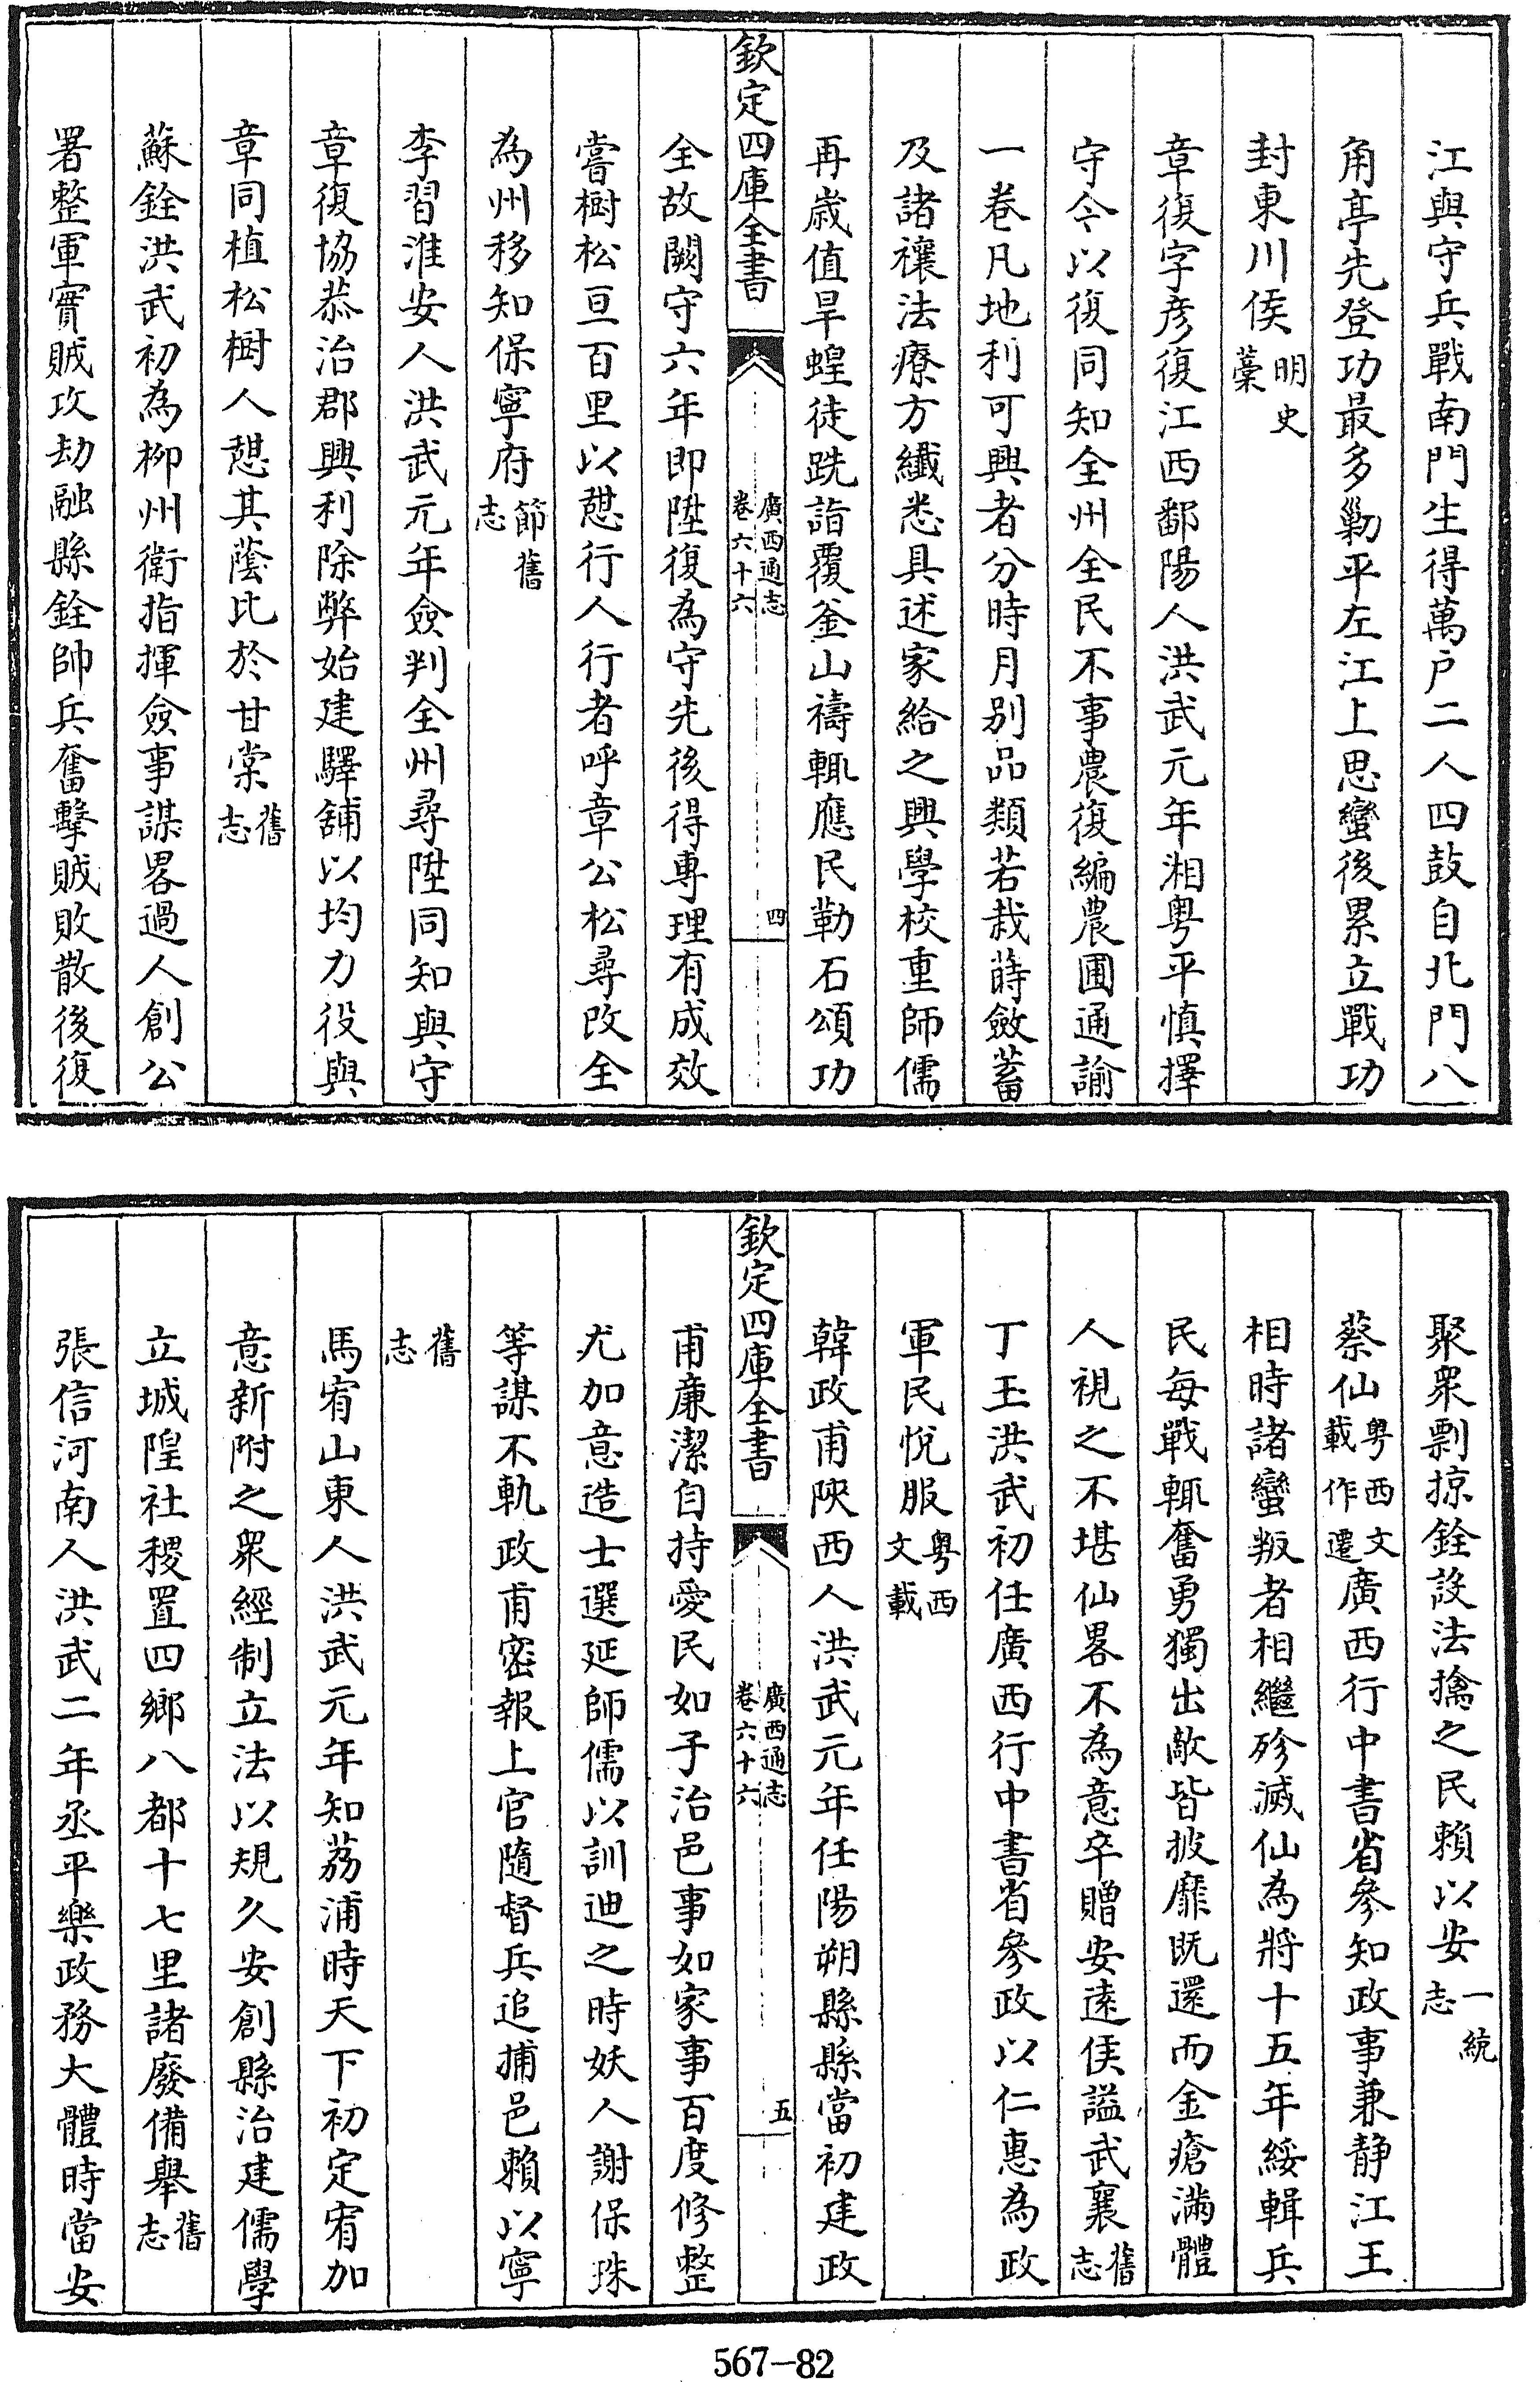 江與守兵戰南門生得萬户二人四鼓自北門八
角亭先登功最多勦平左江上思蠻後累立戰功
封東川侯明史藁
章復字彦復江西鄱陽人洪武元年湘粤平慎擇
守令以復同知全州全民不事農復編農圃通諭
一卷凡地利可興者分時月别品類若栽蒔斂蓄
及諸禳法療方纎悉具述家給之興學校重師儒
再歲值旱蝗徒跣詣覆釜山禱輒應民勒石頌功
欽定四庫全書
廣西通志
卷六十六
四
全故闕守六年即陞復為守先後得專理有成效
嘗樹松亘百里以憇行人行者呼章公松尋改全
為州移知保寧府節舊志
李習淮安人洪武元年僉判全州尋陞同知與守
章復協恭治郡興利除弊始建驛舖以均力役與
章同植松樹人憇其蔭比於甘棠舊志
蘇銓洪武初為柳州衛指揮僉事謀畧過人創公
署整軍實賊攻劫融縣銓帥兵奮擊賊敗散後復
聚衆剽掠銓設法擒之民賴以安一統志
蔡仙粤西文載作遷廣西行中書省參知政事兼静江王
相時諸蠻叛者相繼殄滅仙為將十五年綏輯兵
民每戰輒奮勇獨出敵皆披靡既還而金瘡滿體
人視之不堪仙畧不為意卒贈安逺侯謚武襄舊志
丁玉洪武初任廣西行中書省參政以仁惠為政
軍民悦服粤西文載
韓政甫陝西人洪武元年任陽朔縣縣當初建政
欽定四庫全書
廣西通志
卷六十六
五
甫廉潔自持愛民如子治邑事如家事百度修整
尤加意造士選延師儒以訓迪之時妖人謝保珠
等謀不軌政甫密報上官隨督兵追捕邑賴以寧
舊志
馬宥山東人洪武元年知荔浦時天下初定宥加
意新附之衆經制立法以規久安創縣治建儒學
立城隍社稷置四鄉八都十七里諸廢備舉舊志
張信河南人洪武二年丞平樂政務大體時當安
567—82